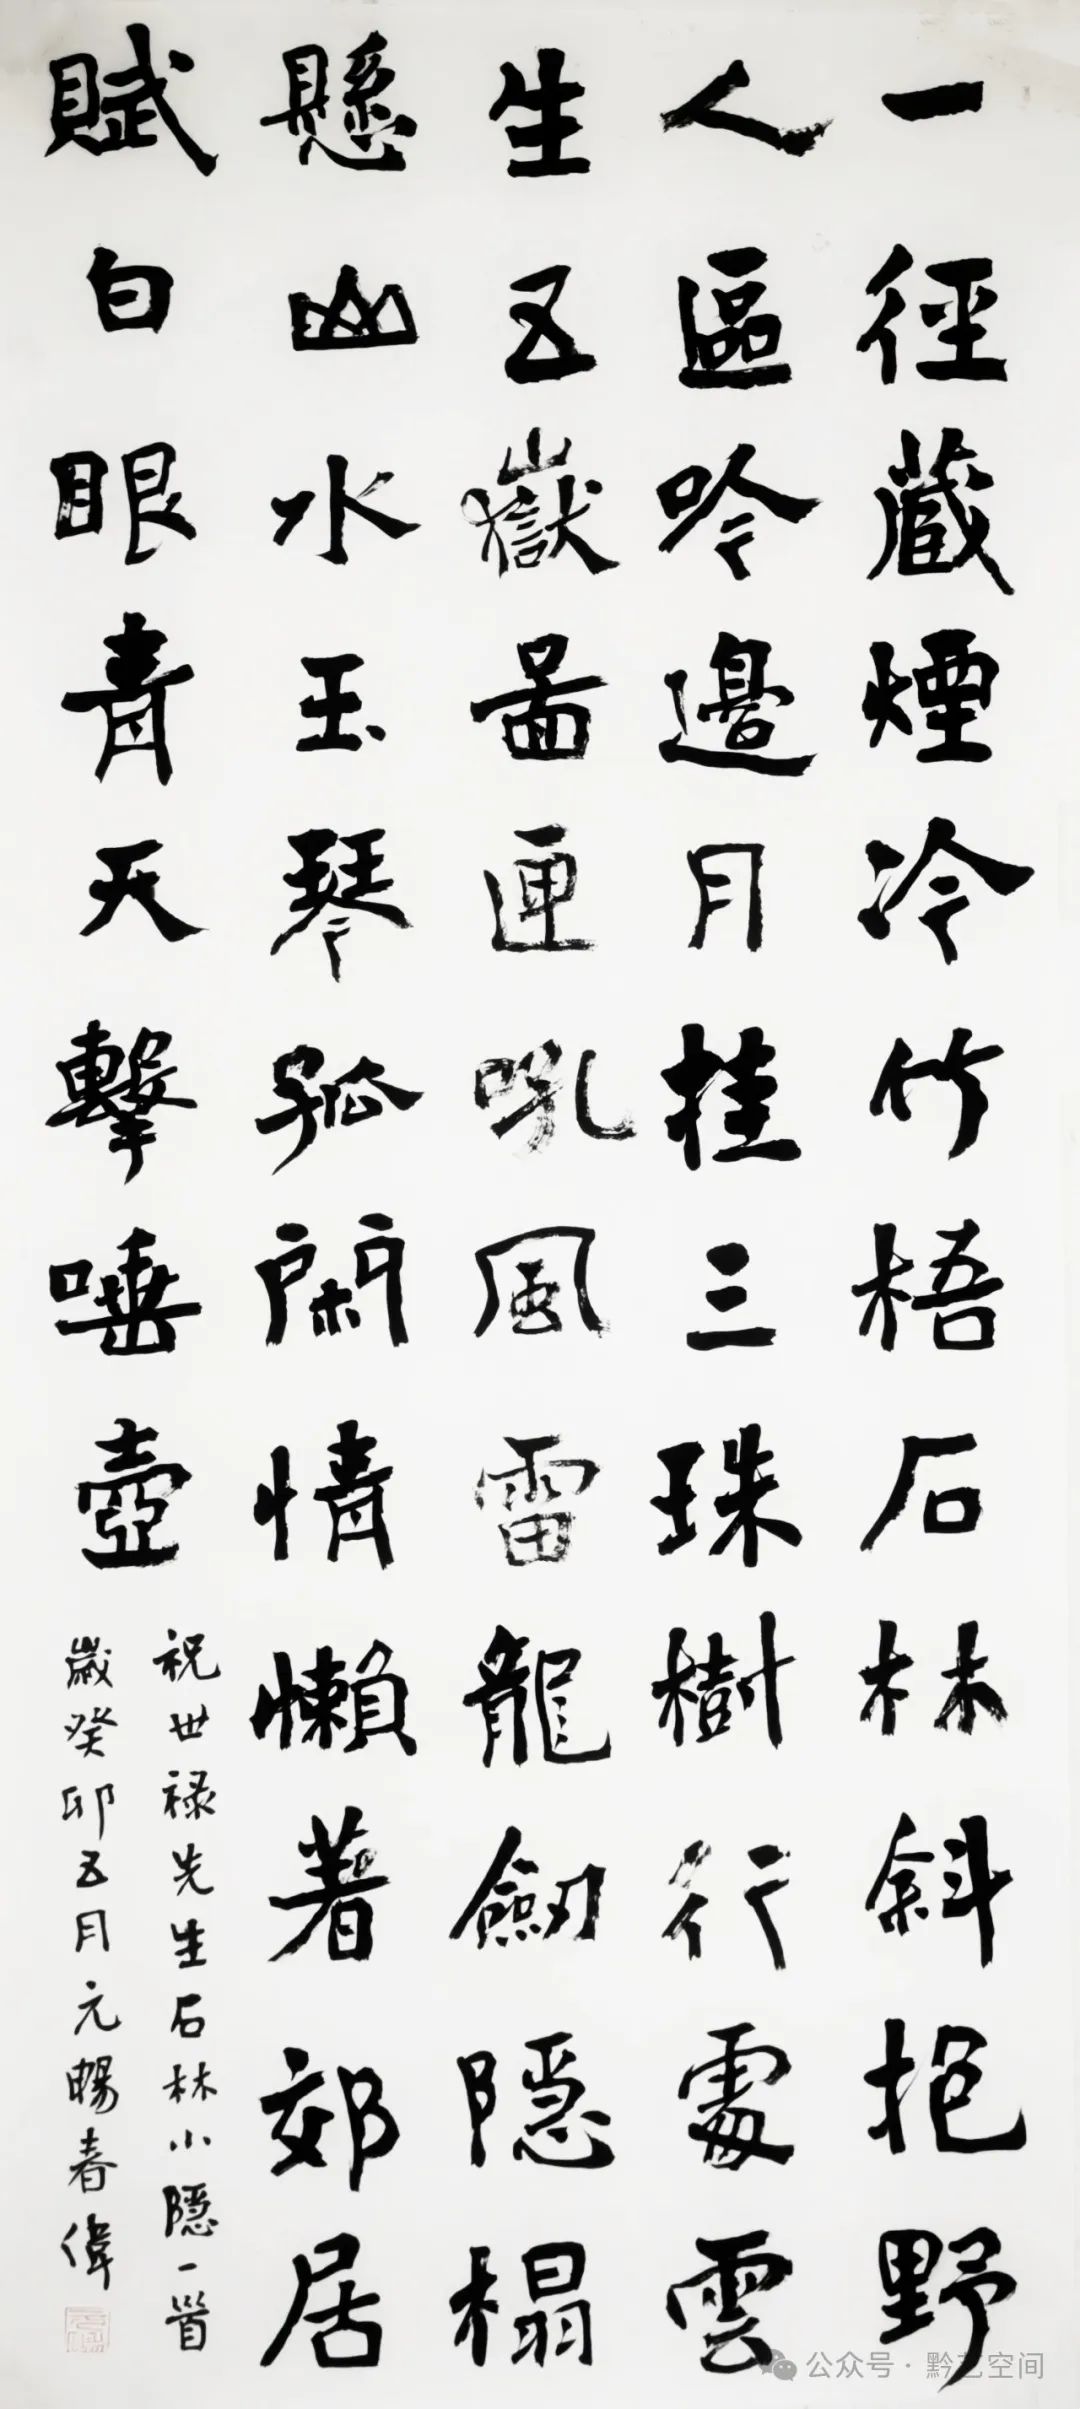 一徑藏煙冷竹梧石林斜抱野
人區吟邊月挂三珠樹行處雲
生五嶽啚匣吼風雷龍劒隱榻
懸山水玉琴孤閑情懶著郊居
賦白眼青天擊唾壺
祝世禄先生石林小隱一首
歲癸卯五月元暢春偉
公众号·黔艺空间